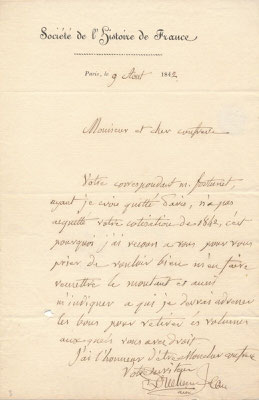 Société de l'Histoire de France
Paris, le 9 Aout 1842
Monsieur et cher confrère
Votre correspondant m. fortunet,
ayant je crois quitté Paris, n'a pas
acquitté votre cotisation de 1842, c'est
pourquoi j'ai recours a vous pour vous
prier de vouloir bien m'en faire
remettre le montant et aussi
m'indiquer a qui je devrais adresser
les bons pour retirer les volumes
auxquels vous avez droit.
J'ai l'honneur d'être Monsieur
Votre serviteur